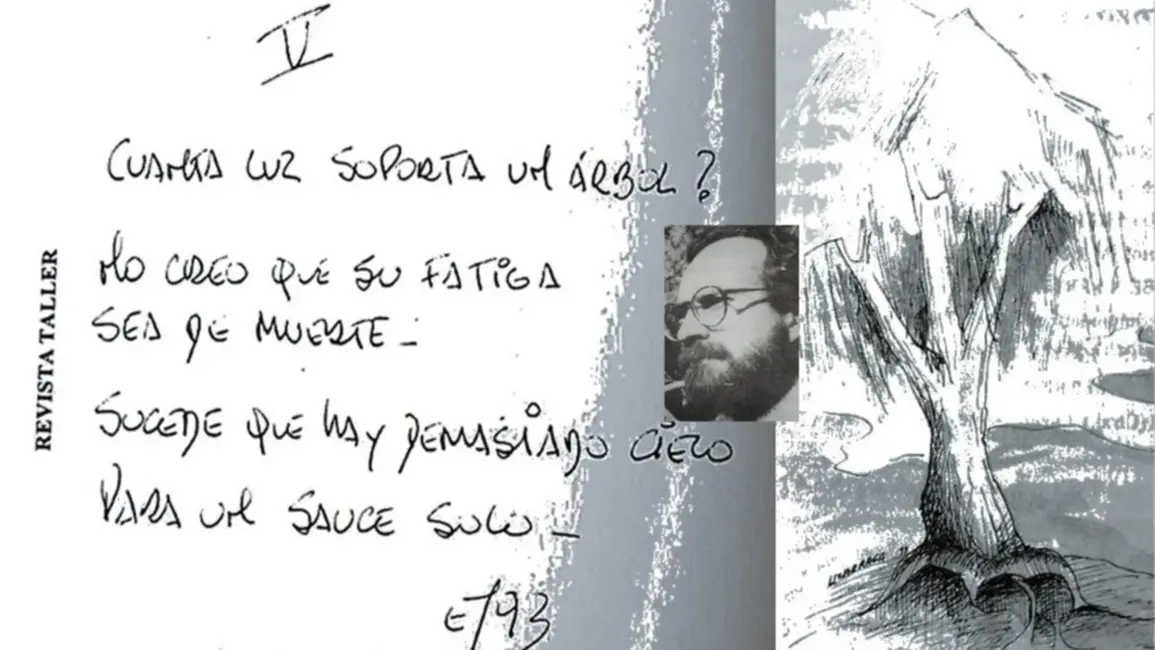 V
CUANTA LUZ SOPORTA UN ÁRBOL?
NO CREO QUE SU FATIGA
SEA DE MUERTE -
SUCEDE QUE HAY DEMASIADO CIELO
PARA UN SAUCE SOLO -
E/93
REVISTA TALLER